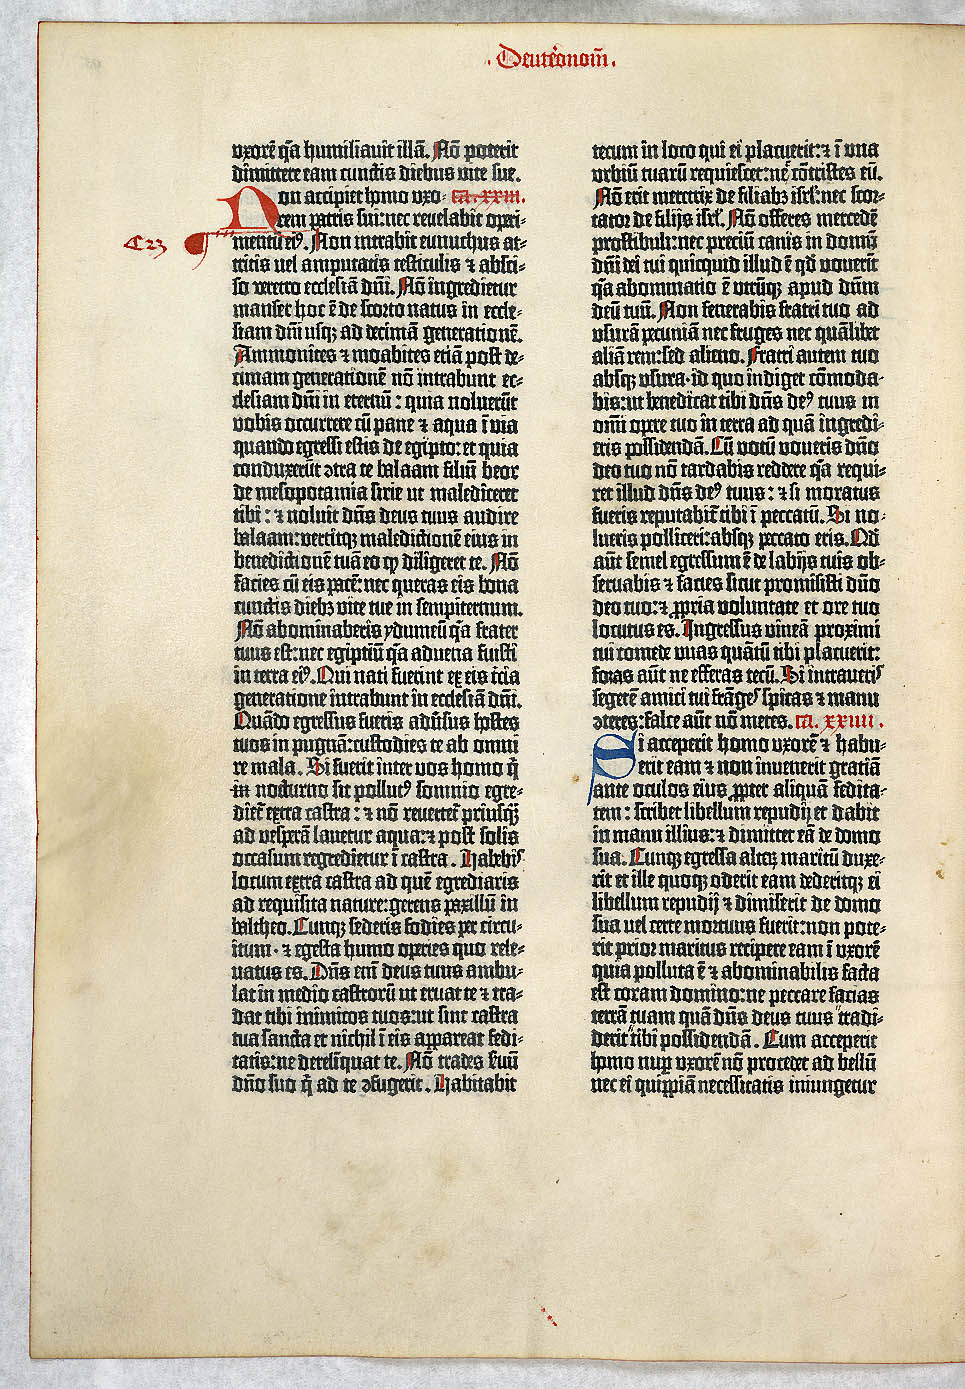 .Deuteronom̄.
uxorē q̄a humiliavit illā. Nō poterit
dimittere eam cunctis diebus vite sue.
Non accipiet homo uxo- ca. xxiii.
rem patris sui: nec revelabit opri-
C 23
mentū eiꝰ. Non intrabit eunuchus at-
tritis vel amputatis testiculis ⁊ absci-
so veretro ecclesiā dn̄i. Nō ingredietur
manser hoc ē de scorto natus in eccle-
siam dn̄i usqꝫ ad decimā generationē.
Ammonites ⁊ moabites etiā post de-
cimam generationē nō intrabunt ec-
clesiam dn̄i in eternū: quia noluerūt
vobis occurrere cū pane ⁊ aqua ī via
quando egressi estis de egipto: et quia
conduxerūt ꝯtra te balaam filiū beor
de mesopotamia sirie ut malediceret
tibi: ⁊ noluit dn̄s deus tuus audire
balaam: vertitqꝫ maledictionē eius in
benedictionē tuā eo ꝙ diligeret te. Nō
facies cū eis pacē: nec queras eis bona
cunctis diebꝫ vite tue in sempiternum.
Nō abominaberis ydumeū q̄a frater
tuus est: nec egiptiū q̄a advena fuisti
in terra eiꝰ. Qui nati fuerint ex eis t̄cia
generatione intrabunt in ecclesiā dn̄i.
Quādo egressus fueris adv̄sus hostes
tuos in pugnā: custodies te ab omni
re mala. Si fuerit inter vos homo q̄
in nocturno sit pollutꝰ somnio egre-
diet̄ extra castra: ⁊ nō revertet̄ priusq̄ꝫ
ad vesperā lavetur aqua: ⁊ post solis
occasum regredietur ī castra. Habebis
locum extra castra ad quē egrediaris
ad requisita nature: gerens paxillū in
baltheo. Cunqꝫ sederis fodies per circu-
itum · ⁊ egesta humo operies quo rele-
vatus es. Dn̄s em̄ deus tuus ambu-
lat in medio castrorū ut eruat te ⁊ tra-
dat tibi inimicos tuos: ut sint castra
tua sancta et nichil ī eis appareat fedi-
tatis: ne derelinquat te. Nō trades s̄vū
dn̄o suo q̄ ad te ꝯfugerit. Habitabit
tecum in loco qui ei placuerit: ⁊ ī una
urbiū tuarū requiescet: neꝫ cōtristes eū.
Nō erit meretrix de filiabꝫ isrl̄: nec scor-
tator de filijs isrl̄. Nō offeres mercedē
prostibuli: nec preciū canis in domū
dn̄i dei tui quicquid illud ē qd̄ voverit
q̄a abominatio ē utrūqꝫ apud dn̄m
deū tuū. Non fenerabis fratri tuo ad
usurā pecuniā nec fruges nec quālibet
aliā rem: sed alieno. Fratri autem tuo
absqꝫ usura · id quo indiget cōmoda-
bis: ut benedicat tibi dn̄s deꝰ tuus in
om̄i opere tuo in terra ad quā ingredi-
eris possidendā. Cū votū voveris dn̄o
deo tuo nō tardabis reddere q̄a requi-
ret illud dn̄s deꝰ tuus: ⁊ si moratus
fueris reputabit̄ tibi ī peccatū. Si no-
lueris polliceri: absqꝫ peccato eris. Qd̄
aūt semel egressum ē de labijs tuis ob-
servabis ⁊ facies sicut promisisti dn̄o
deo tuo: ⁊ ꝓpria voluntate et ore tuo
locutus es. Ingressus vineā proximi
tui comede uvas quātū tibi placuerit:
foras aūt ne efferas tecū. Si intraveris
segetē amici tui frāges spicas ⁊ manu
ꝯteres: falce aūt nō metes. ca. xxiiii.
Si acceperit homo uxorē ⁊ habu-
erit eam ⁊ non invenerit gratiā
ante oculos eius ꝓpter aliquā fedita-
tem: scribet libellum repudij et dabit
in manu illius: ⁊ dimittet eā de domo
sua. Cunqꝫ egressa alterꝫ maritū duxe-
rit et ille quoqꝫ oderit eam dederitqꝫ ei
libellum repudij ⁊ dimiserit de domo
sua vel certe mortuus fuerit: non pote-
rit prior maritus recipere eam ī uxorē
quia polluta ē ⁊ abominabilis facta
est coram domino: ne peccare facias
terrā tuam quā dn̄s deus tuus tradi-
derit tibi possidendā. Cum acceperit
homo nuꝑ uxorē nō procedet ad bellū
nec ei quippiā necessitatis iniungetur